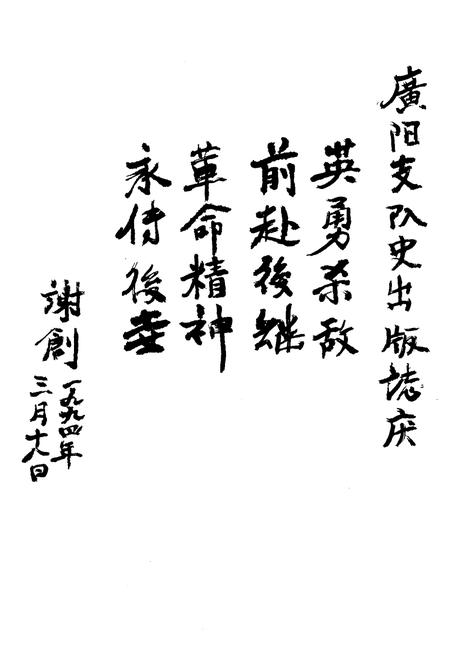 廣阳支队史出版誌庆
英勇杀敌
前赴後继
革命精神
永传後世
谢創
一九九四年
三月十八日